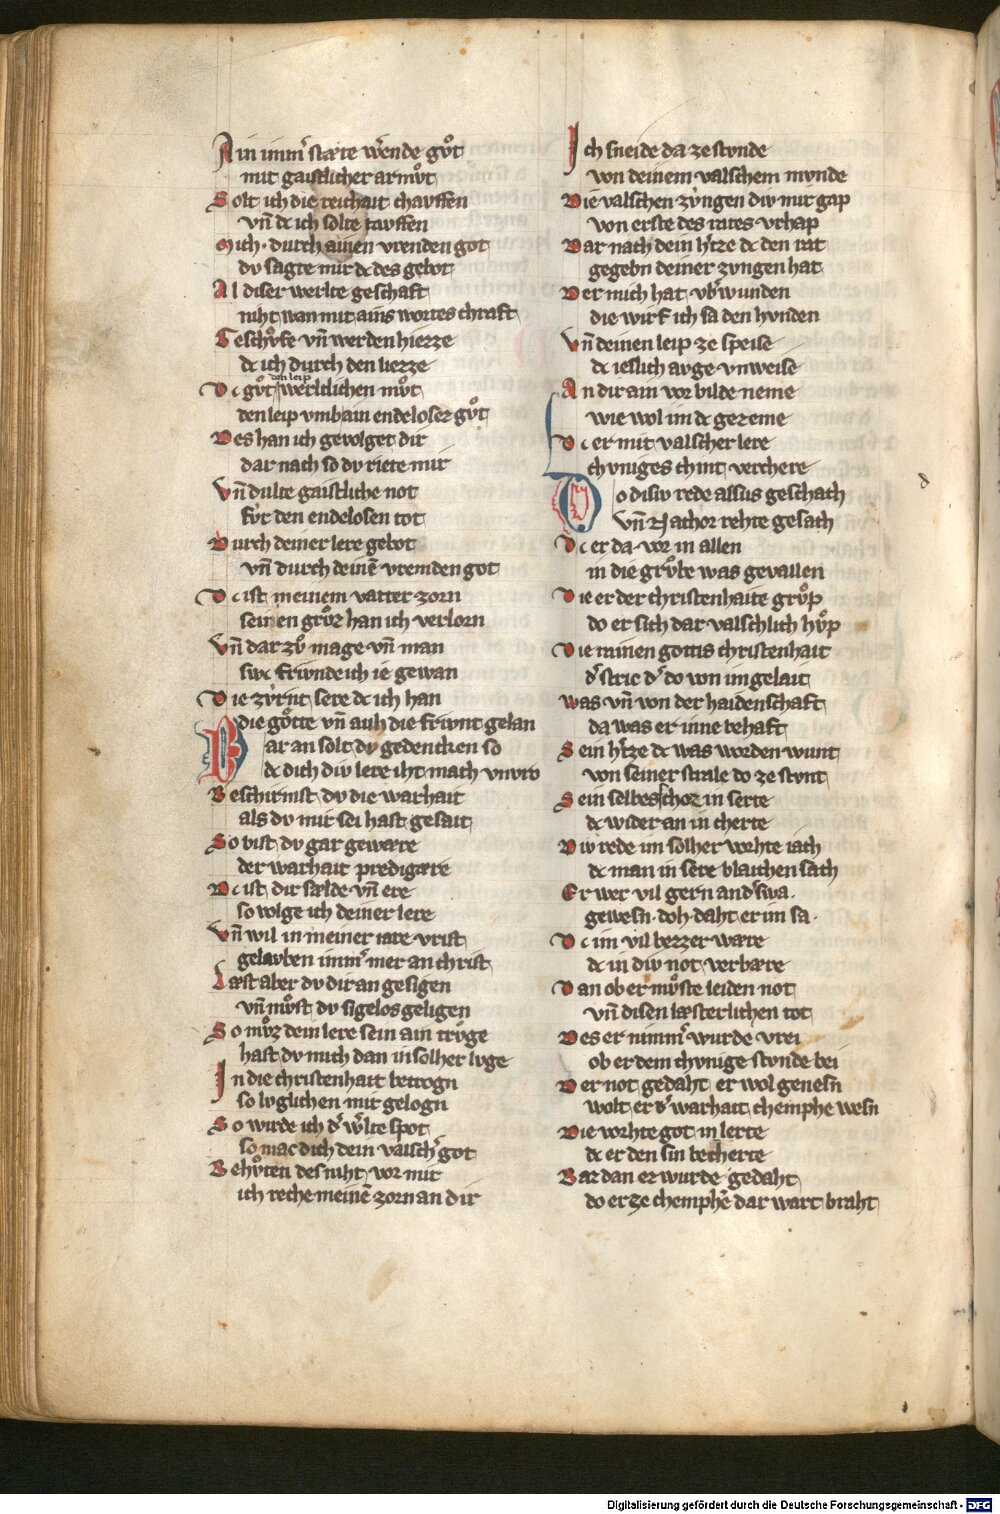 Ain imm̄ stæte wͤende guͦt
mit gaistlicher armuͦt
Solt ich die reichait chauffen
vn̄ dc ich solte tauffen
Mich · durch ainen vrenden got
dv sagte mir dc des gebot
Al diser werlte geschaft
niht wan mit ains wortes chraft
Geschuͤfe vn̄ werden hiezze
dc ich durch den liezze
Dc guͦt von leip werltlichen muͦt
den leip vmb ain endeloser guͦt
Des han ich gevolget dir
dar nach so dv riete mir
Vn̄ dulte gaistliche not
fvr den endelosen tot
Durch deiner lere gebot
vn̄ durch deinē vremden got
Dc ist meinem vatter zorn
seinen gruͦz han ich verlorn
Vn̄ dar zvͦ mage vn̄ man
swc frivnde ich ie gewan
Die zvrnt sere dc ich han
die goͤtte vn̄ auh die frivnt gelan
Daran solt dv gedenchen so
dc dich div lere iht mach vnvro
Beschirmst dv die warhait
als dv mir sei hast gesait
So bist dv gar gewære
der warhait predigære
Dc ist dir sælde vn̄ ere
so volge ich deiner lere
Vn̄ wil in meiner iare vrist
gelauben imm̄ mer an christ
Læst aber dv dir an gesigen
vn̄ muͦst dv sigelos geligen
So muͦz dein lere sein ain truͦge
hast dv mich dan in solher lvge
In die christenhait betrogn
so lvglichen mir gelogn
So wirde ich d͛ w͛lte spot
so mac dich dein valsch͛ got
Behuͤten des niht vor mir
ich reche meinē zorn an dir
Ich sneide da zestvnde
von deinem valschem mvnde
Die valschen zvngen div mir gap
von erste des rates vrhap
Dar nach dein h͛tze dc den rat
gegebn deiner zvngen hat
Der mich hat vb͛wunden
die wirf ich sa den hvnden
Vn̄ deinen leip ze speise
dc ieslich auge vnweise
An dir ain vor bilde neme
wie wol im dc gezeme
Dc er mit valscher lere
chvniges chint verchere
Do disiv rede alsus geschach
vn̄ Nathor rehte gesach
Dc er da vor in allen
in die gruͦbe was gevallen
Die er der christenhaite gruͦp
do er sich dar valschlich huͦp
Die minen gottis christenhait
d͛ stric d͛ do von im gelait
was vn̄ von der haidenschaft
da was er inne behaft
Sein h͛tze dc was worden wunt
von seiner strale do ze stvnt
Sein selbes schoz in serte
dc wider an in cherte
Div rede im solher vorhte iach
dc man in sere blaichen sach
Er wer vil gern and͛swa ·
gewesn · doh daht er im sa ·
Dc im vil bezzer wære
dc in div not verbære
Dan ob er muͤste leiden not
vn̄ disen læsterlichen tot
Des er nimm͛ wurde vrei
ob er dem chvnige stvnde bei
Der not gedaht er wol genesn
wolt er d͛ warhait chemphe wesn
Die vorhte got in lerte
dc er den sin becherte
Bar dan er wurde gedaht
do er ze chemphē dar wart braht
Digitalisierung gefördert durch die Deutsche Forschungsgemeinschaft - DFG